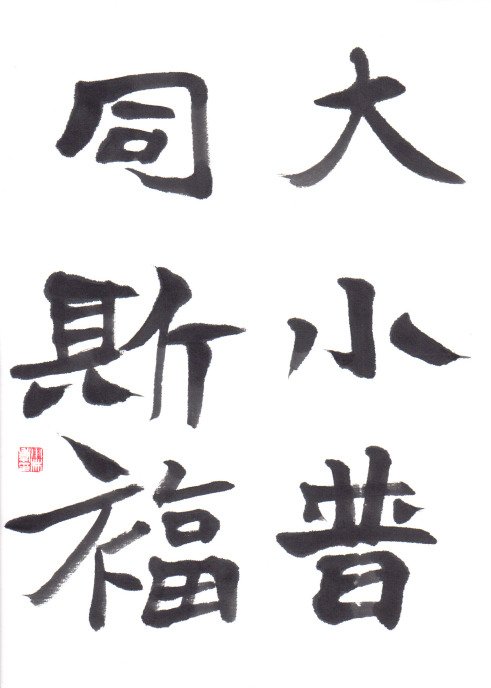 大小普
同斯福